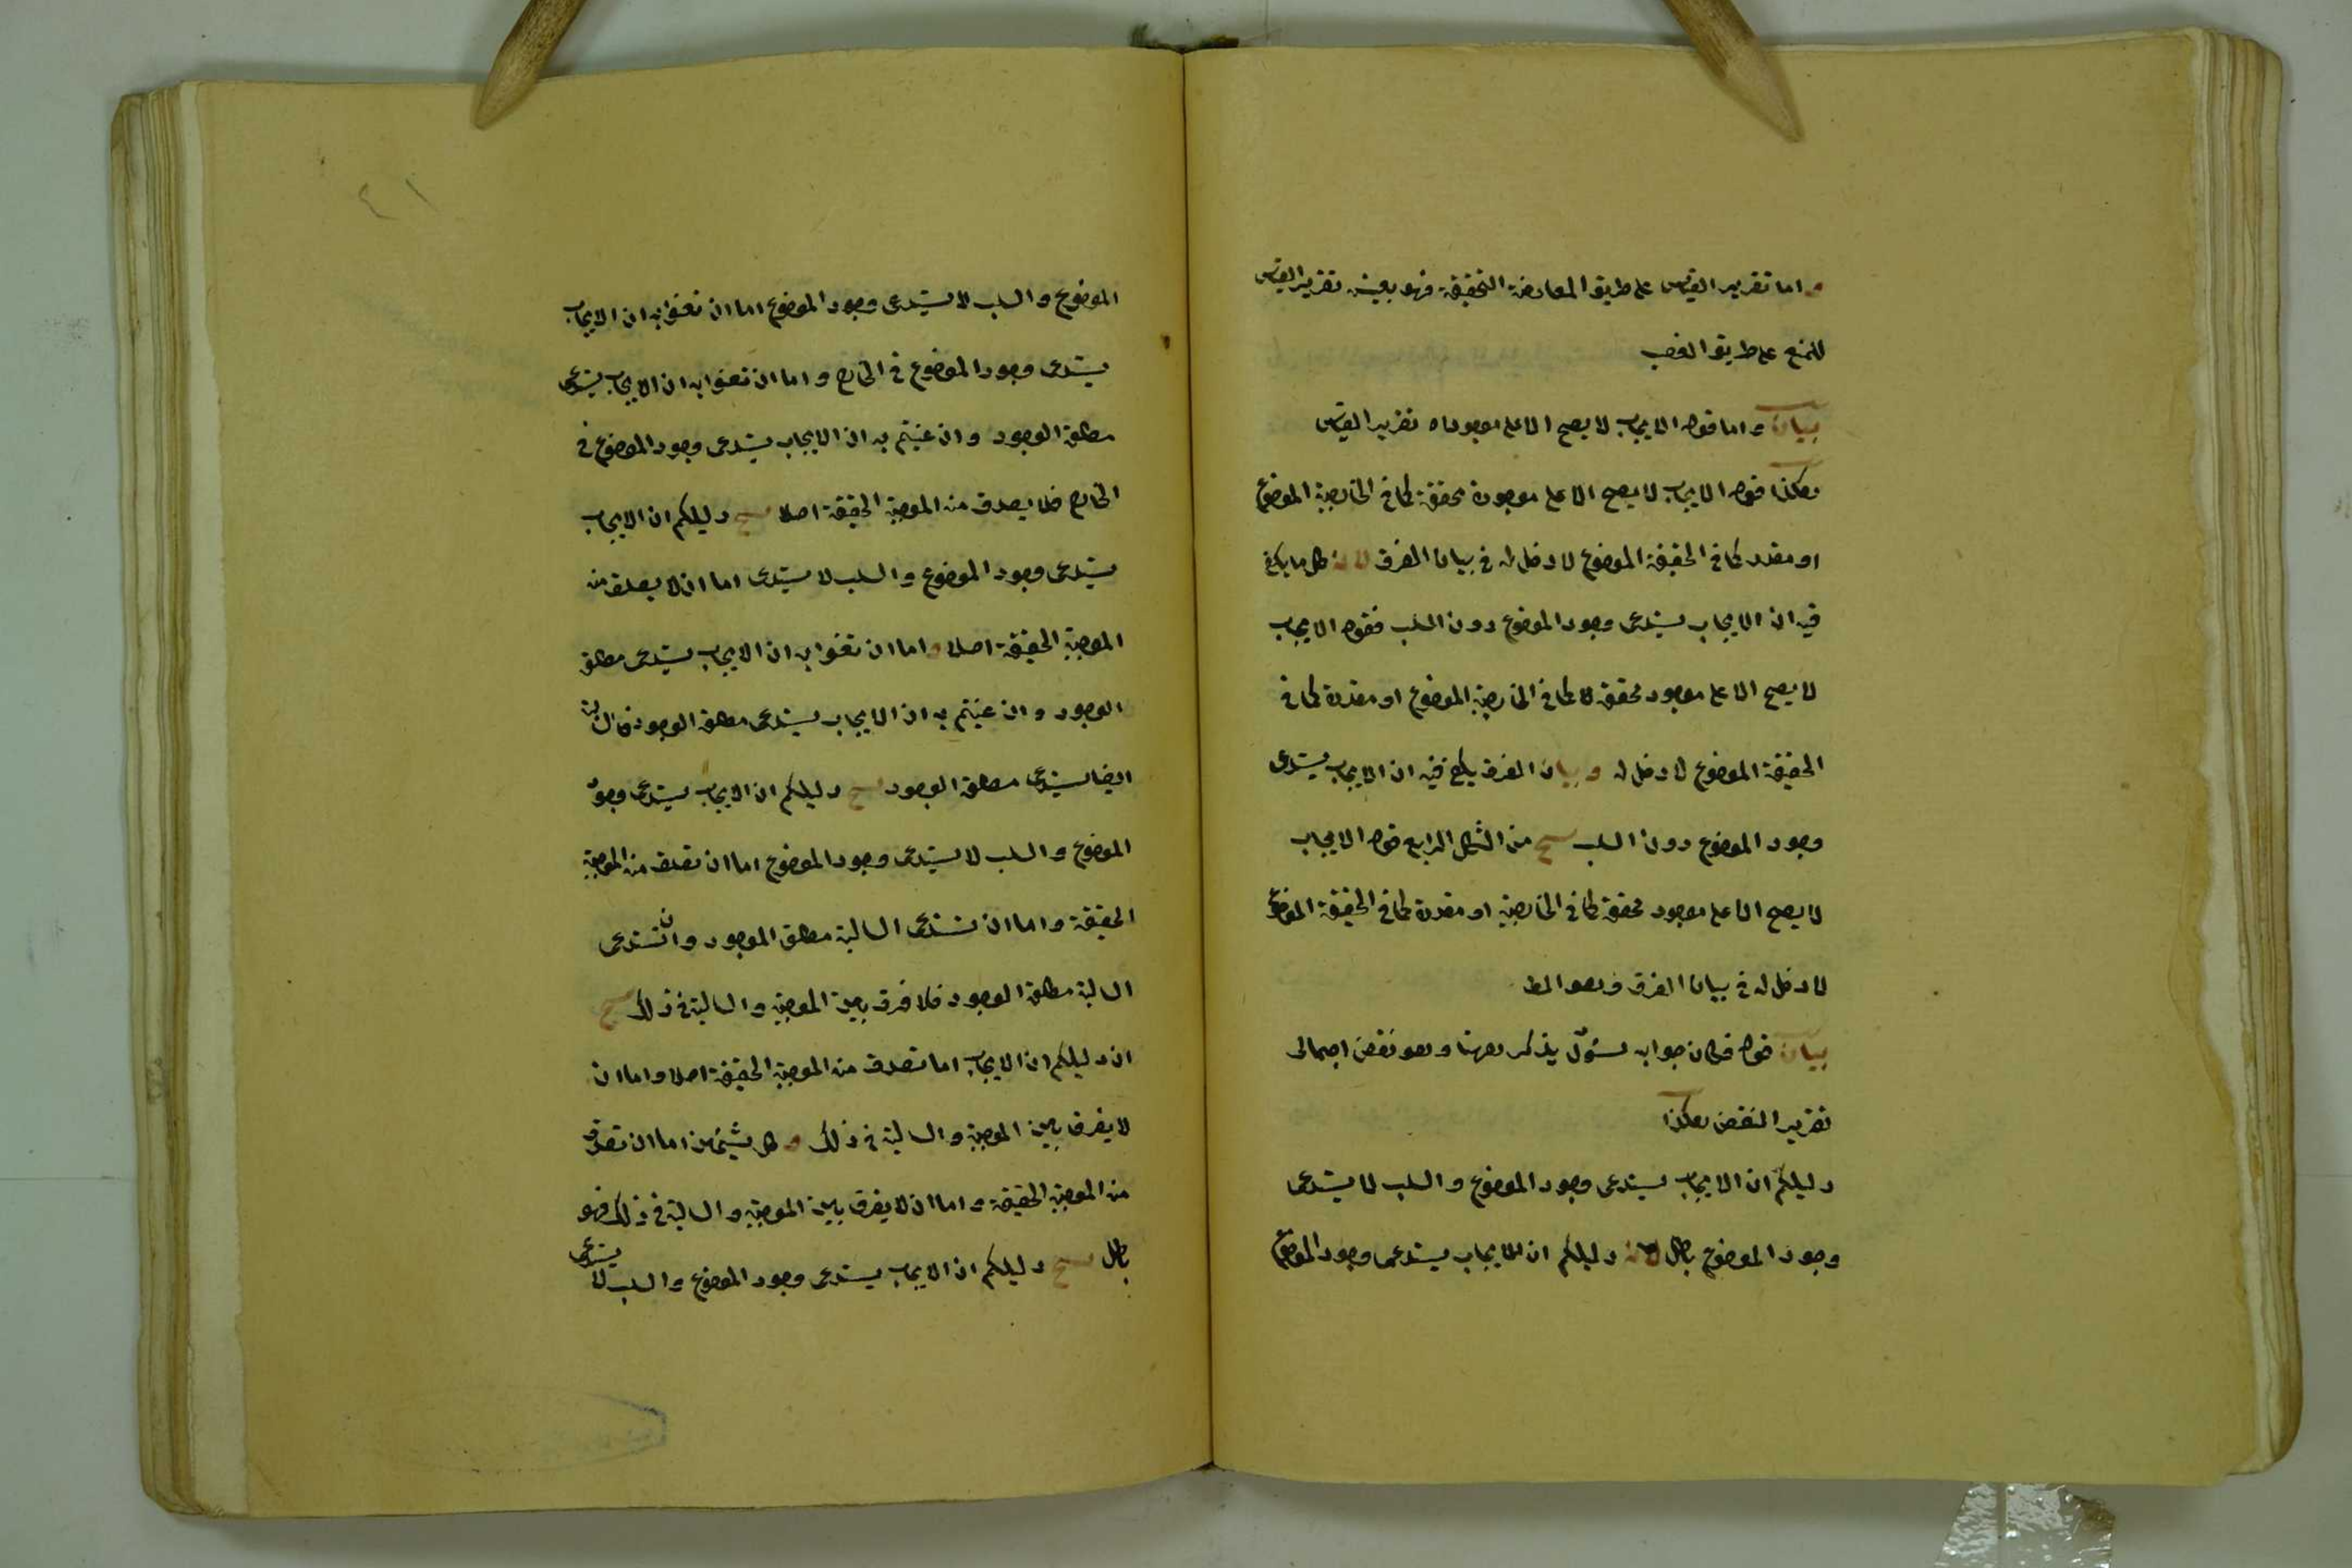 واما تقرير القياس على طريق المعارضة التحقيقية فهو بعينه تقرير القياس
للمنع على طريق الغصب
بيان واما قوله الايجاب لا يصح الا على موجود اه تقرير القياس
هكذا قوله الايجاب لا يصح الا على موجودة محققة كما في الخارجية الموضوع
او مقدر كما في الحقيقية الموضوع لا دخل له في بيان الفرق لانه كل ما يكفى
فيه ان الايجاب يستدعى وجود الموضوع دون السلب فقوله الايجاب
لا يصح الا على موجود محققة كما في الخارجية الموضوع او مقدرة كما في
الحقيقية الموضوع لا دخل له و بيان الفرق يكفى فيه ان الايجاب يستدعى
وجود الموضوع دون السلب ينتج من الشكل الرابع قوله الايجاب
لا يصح الا على موجود محققة كما في الخارجية او مقدرة كما في الحقيقية الموضوع
لا دخل له في بيان الفرق وهو المط
بيان قوله فكان جوابه لسؤال يذكر ههنا وهو نقض اجمالى
تقرير النقض هكذا
دليلكم ان الايجاب يستدعى وجود الموضوع والسلب لا يستدعى
وجود الموضوع باطل لانه دليلكم ان الايجاب يستدعى وجود الموضوع
٤١
الموضوع والسلب لا يستدعى وجود الموضوع اما ان تعنوا به ان الايجاب
يستدعى وجود الموضوع في الخارج واما ان تعنوا به ان الايجاب يستدعى
مطلق الوجود وان عنيتم به ان الايجاب يستدعى وجود الموضوع في
الخارج فلا يصدق من الموجبة الحقيقية اصلا ينتج دليلكم ان الايجاب
يستدعى وجود الموضوع والسلب لا يستدعى اما ان لا يصدق من
الموجبة الحقيقية اصلا واما ان تعنوا به ان الايجاب يستدعى مطلق
الوجود وان عنيتم به ان الايجاب يستدعى مطلق الوجود فالسالبة
ايضا يستدعى مطلق الوجود ينتج دليلكم ان الايجاب يستدعى وجود
الموضوع والسلب لا يستدعى وجود الموضوع اما ان تصدق من الموجبة
الحقيقية واما ان تستدعى السالبة مطلق الوجود وان تستدعى
السالبة مطلق الوجود فلا فرق بين الموجبة والسالبة في ذلك ينتج
ان دليلكم ان الايجاب اما تصدق من الموجبة الحقيقية اصلا واما ان
لا يفرق بين الموجبة والسالبة في ذلك و كل شيئين اما ان تصدق
من الموجبة الحقيقية واما ان لا يفرق بين الموجبة والسالبة في ذلك فهو
باطل ينتج دليلكم ان الايجاب يستدعى وجود الموضوع والسلب لا يستدعى